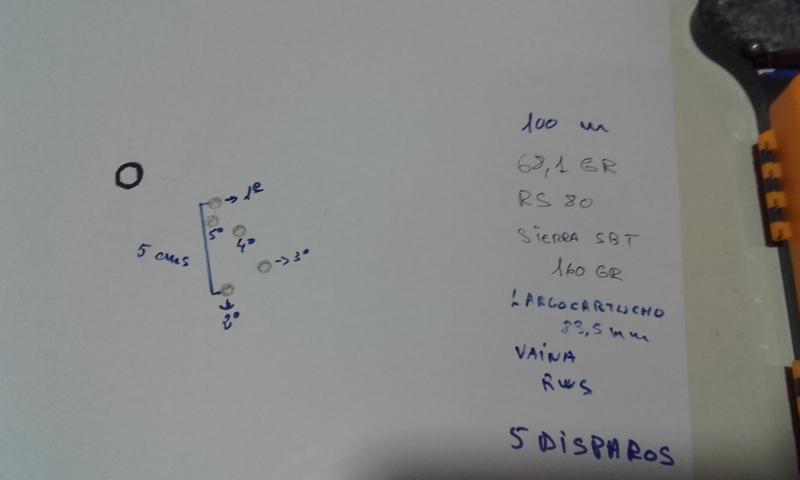 100 m
68,1 GR
RS 80
SIERRA SBT
160 GR
LARGO CARTUCHO
83,5 mm
VAINA
RWS
5 DISPAROS
1º
5º
4º
5 cms
3º
2º